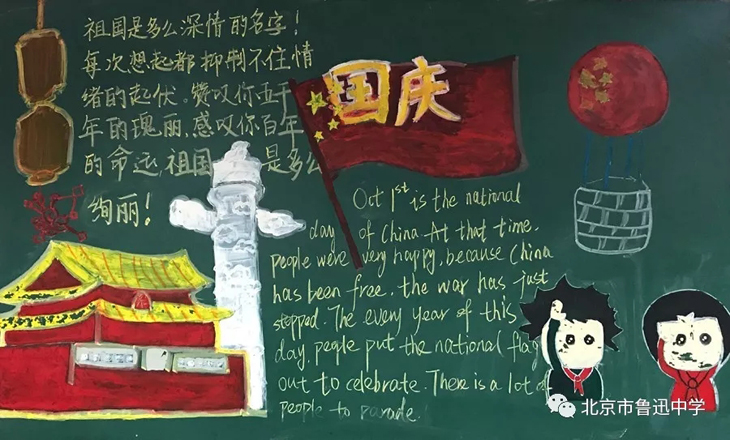 祖国是多么深情的名字！
每次想起都抑制不住情
绪的起伏。赞叹你五千
年的瑰丽，感叹你百年
的命运，祖国 是多么
绚丽！
国庆
Oct 1st is the national
day of China. At that time,
people were very happy, because China
has been free, the war has just
stopped. The every year of this
day, people put the national flag
out to celebrate. There is a lot of
people to parade.
北京市鲁迅中学